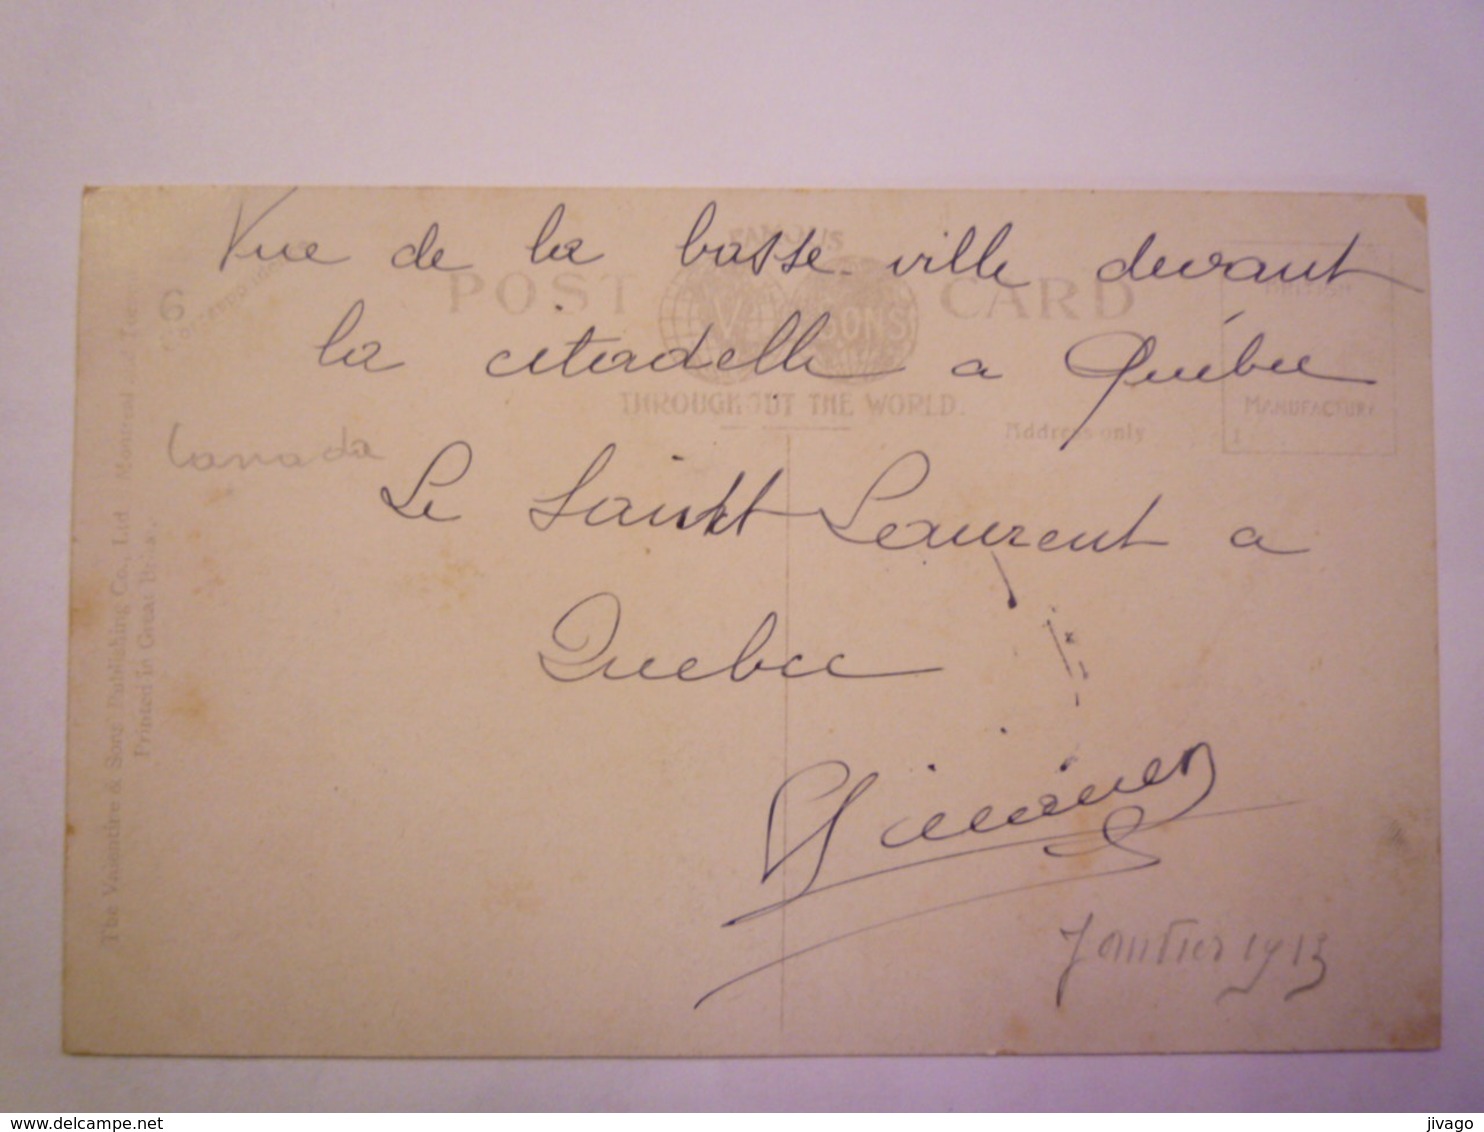 Vue de la basse-ville devant
la citadelle a Québec
Le Saint Laurent a
Quebec
Janvier 1913
Canada
6
FAMOUS
POST CARD
V
SONS
THROUGHOUT THE WORLD.
Address only
MANUFACTURE
The Valentine & Sons Publishing Co., Ltd Montreal and
Printed in Great
delcampe.net
jivago